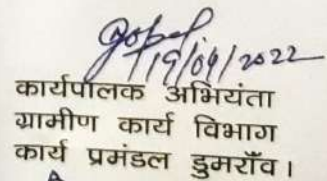 19/04/2022
कार्यपालक अभियंता
ग्रामीण कार्य विभाग
कार्य प्रमंडल डुमराँव।